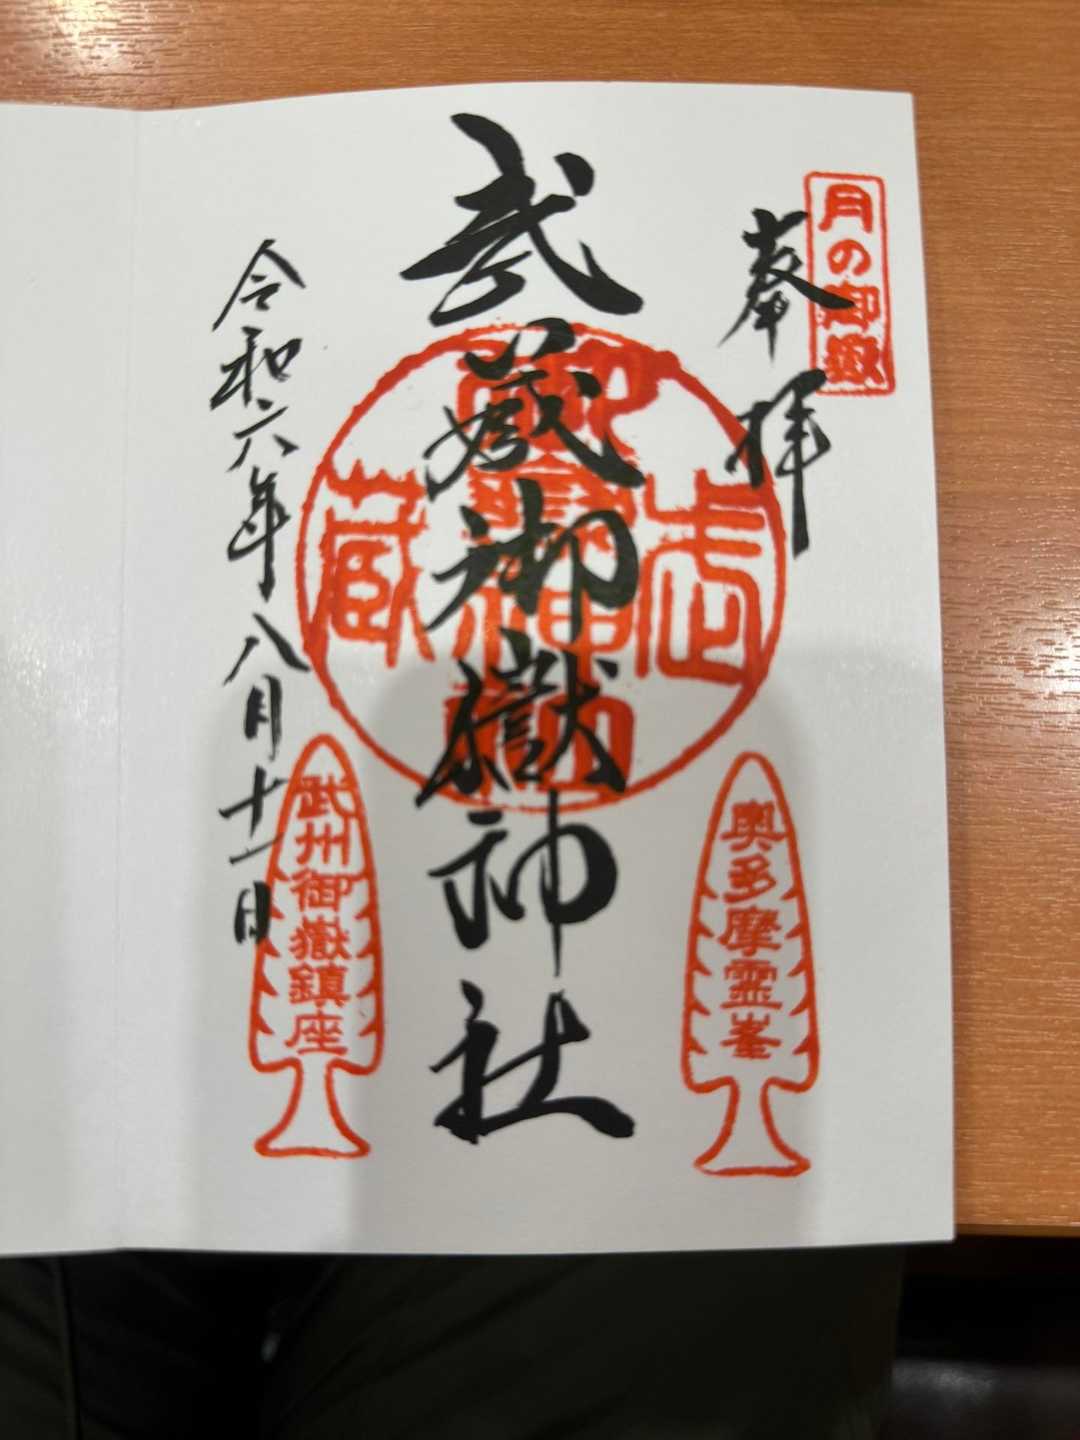 月の御嶽
奉拝
武蔵御嶽神社
令和六年八月十一日
奥多摩霊峯
武州御嶽鎮座
武蔵